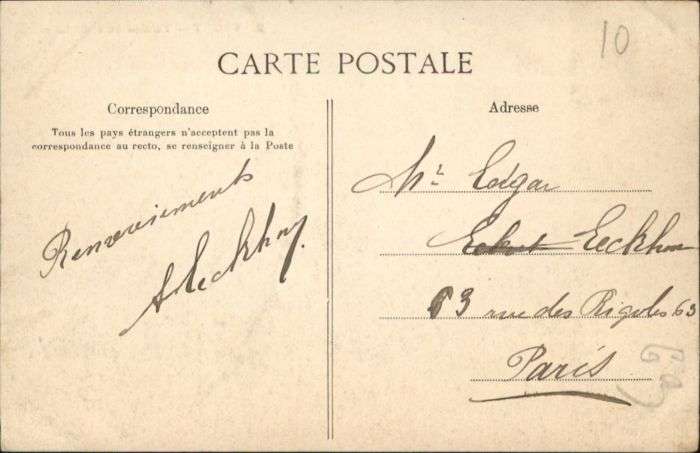 10
CARTE POSTALE
Correspondance
Tous les pays étrangers n'acceptent pas la
correspondance au recto, se renseigner à la Poste
Remerciements
Adresse
Mr Edgar
Eeckhou
63 rue des Rigoles 63
Paris